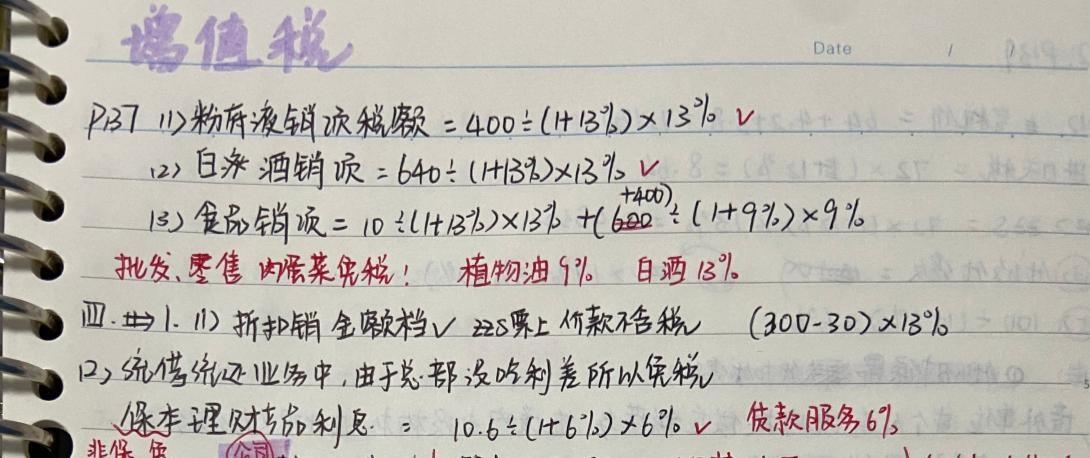 增值税
Date / /
P137 (1) 粉底液销项税额 = 400÷(1+13%)×13% ✓
(2) 白酒销项 = 640÷(1+13%)×13% ✓
+400)
(3) 食品销项 = 10÷(1+13%)×13% + (600 ÷ (1+9%)×9%
批发、零售 肉蛋菜免税! 植物油9% 白酒13%
四. 1. (1) 折扣销 金额栏✓ ZZS票上价款不含税 (300-30)×13%
(2) 统借统还业务中,由于总部没吃利差所以免税
保本理财产品利息 = 10.6÷(1+6%)×6% ✓ 贷款服务6%
非保 免